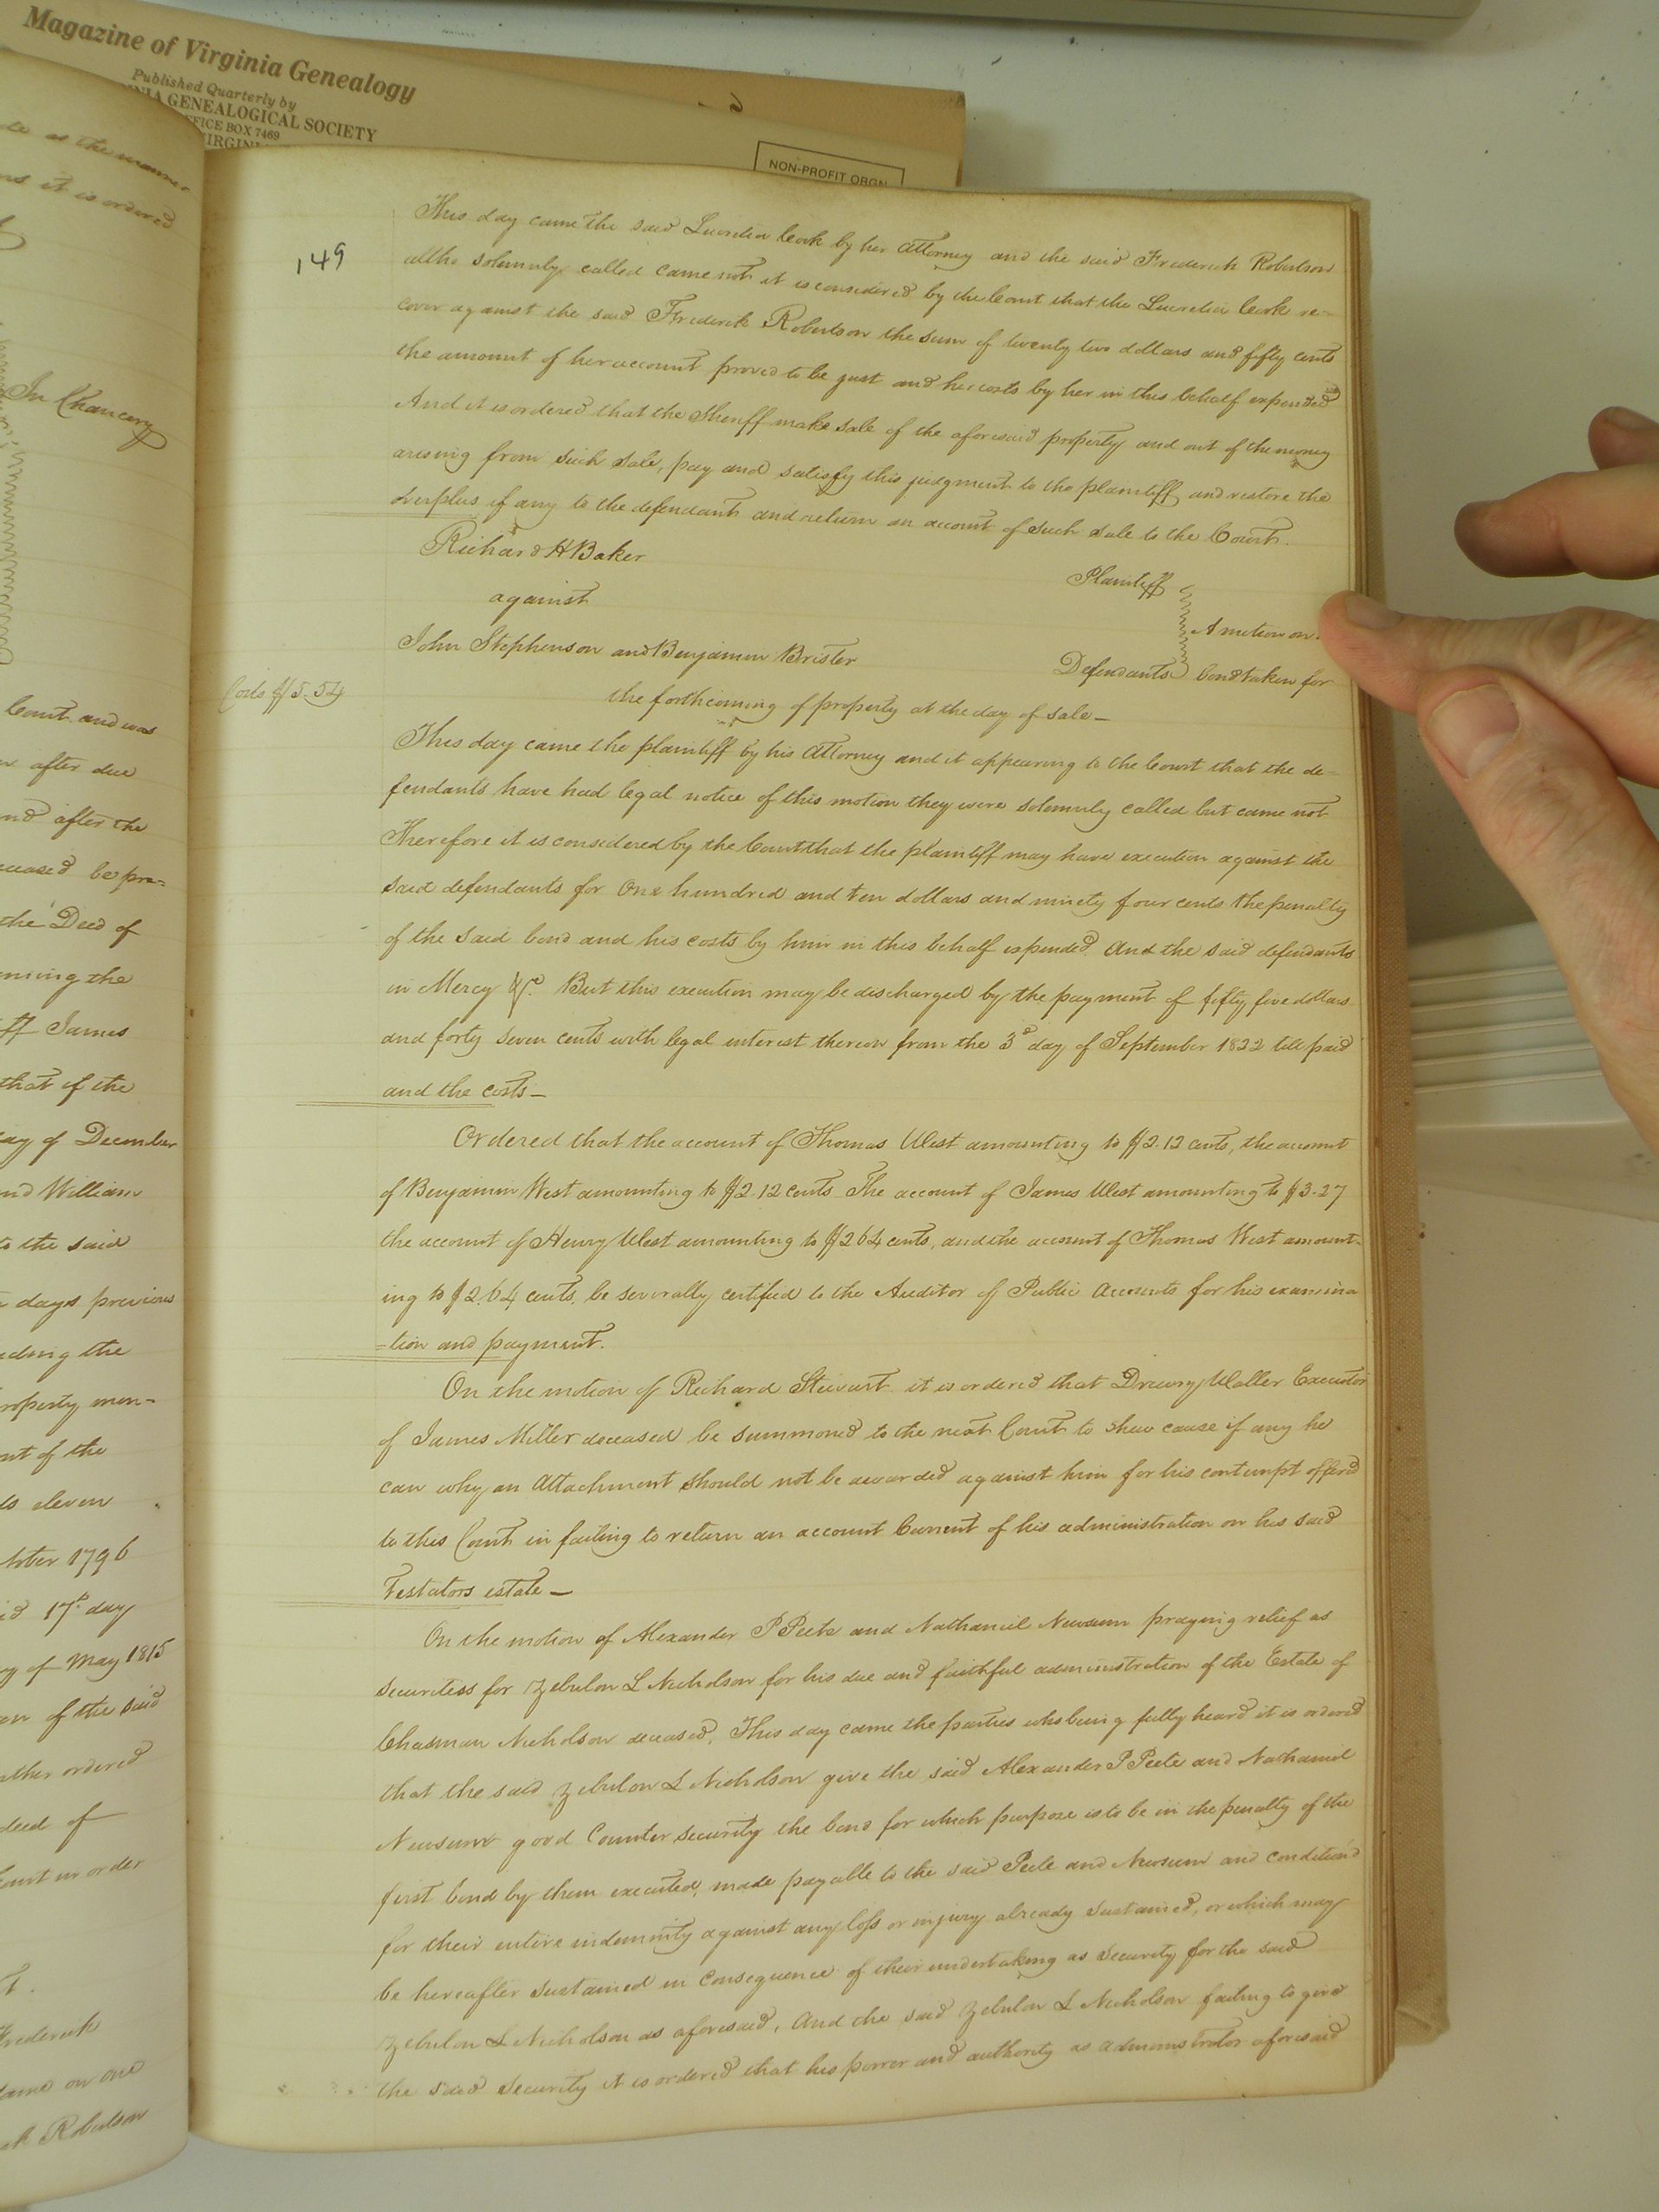 Magazine of Virginia Genealogy
Published Quarterly by
INIA GENEALOGICAL SOCIETY
FFICE BOX 7469
VIRGIN
NON-PROFIT ORGN
as the manner
it is ordered
In Chancery
Court and was
after due
nd after the
ceased be pre=
the Deed of
the
James
that if the
ay of December
nd William
to the said
days previous
ding the
roperty men-
nt of the
eleven
1796
17th day
y of May 1815
of the said
ther ordered
deed of
ourt in order
Frederick
on one
Robertson
149
This day came the said Lucretia Cook by her Attorney and the said Frederick Robertson
altho solemnly called came not it is considered by the Court that the Lucretia Cook re-
cover against the said Frederick Robertson the sum of twenty two dollars and fifty cents
the amount of her account proved to be just and her costs by her in this behalf expended
And it is ordered that the Sheriff make sale of the aforesaid property and out of the money
arising from such sale, pay and satisfy this judgment to the plaintiff and restore the
surplus if any to the defendant and return an account of such sale to the Court.
Richard H Baker
Plaintiff
against
A motion on
John Stephenson and Benjamin Brister
Defendants bond taken for
Costs $5.54
the forthcoming of property at the day of sale—
This day came the plaintiff by his Attorney and it appearing to the Court that the de=
fendants have had legal notice of this motion they were solemnly called but came not
Therefore it is considered by the Court that the plaintiff may have execution against the
said defendants for One hundred and ten dollars and ninety four cents the penalty
of the said bond and his costs by him in this behalf expended And the said defendants
in Mercy &c. But this execution may be discharged by the payment of fifty five dollars
and forty seven cents with legal interest thereon from the 3d day of September 1822 till paid
and the costs—
Ordered that the account of Thomas West amounting to $2.12 cents, the account
of Benjamin West amounting to $2.12 cents The account of James West amounting to $3.27
the account of Henry West amounting to $2 64 cents, and the account of Thomas West amount-
ing to $2.64 cents, be severally certified to the Auditor of Public Accounts for his examina
=tion and payment.
On the motion of Richard Stewart it is ordered that Drewry Waller Executor
of James Miller deceased be summoned to the next Court to shew cause if any he
can why an Attachment should not be awarded against him for his contempt offered
to this Court in failing to return an account Current of his administration on his said
Testators estate—
On the motion of Alexander P Peete and Nathaniel Newsum praying relief as
securitess for Zebulon L Nicholson for his due and faithful administration of the Estate of
Chasman Nicholson deceased, This day came the parties who being fully heard it is ordered
that the said Zebulon L Nicholson give the said Alexander P Peete and Nathaniel
Newsum good Counter security the bond for which purpose is to be in the penalty of the
first bond by them executed, made payable to the said Peete and Newsum and condition'd
for their entire indemnity against any loss or injury already sustained, or which may
be hereafter sustained in consequence of their undertaking as security for the said
Zebulon L Nicholson as aforesaid, And the said Zebulon L Nicholson failing to give
the said Security it is ordered that his power and authority as administrator aforesaid